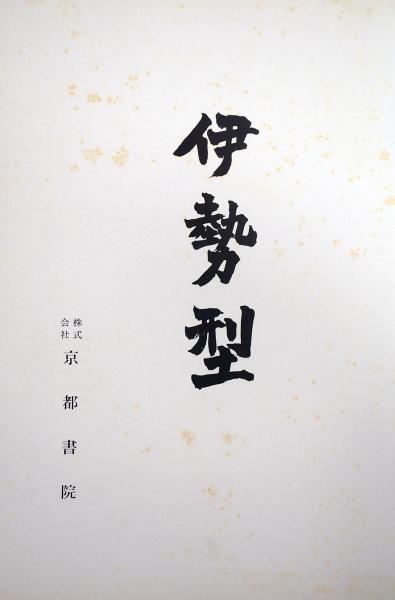 伊勢型
株式会社 京都書院